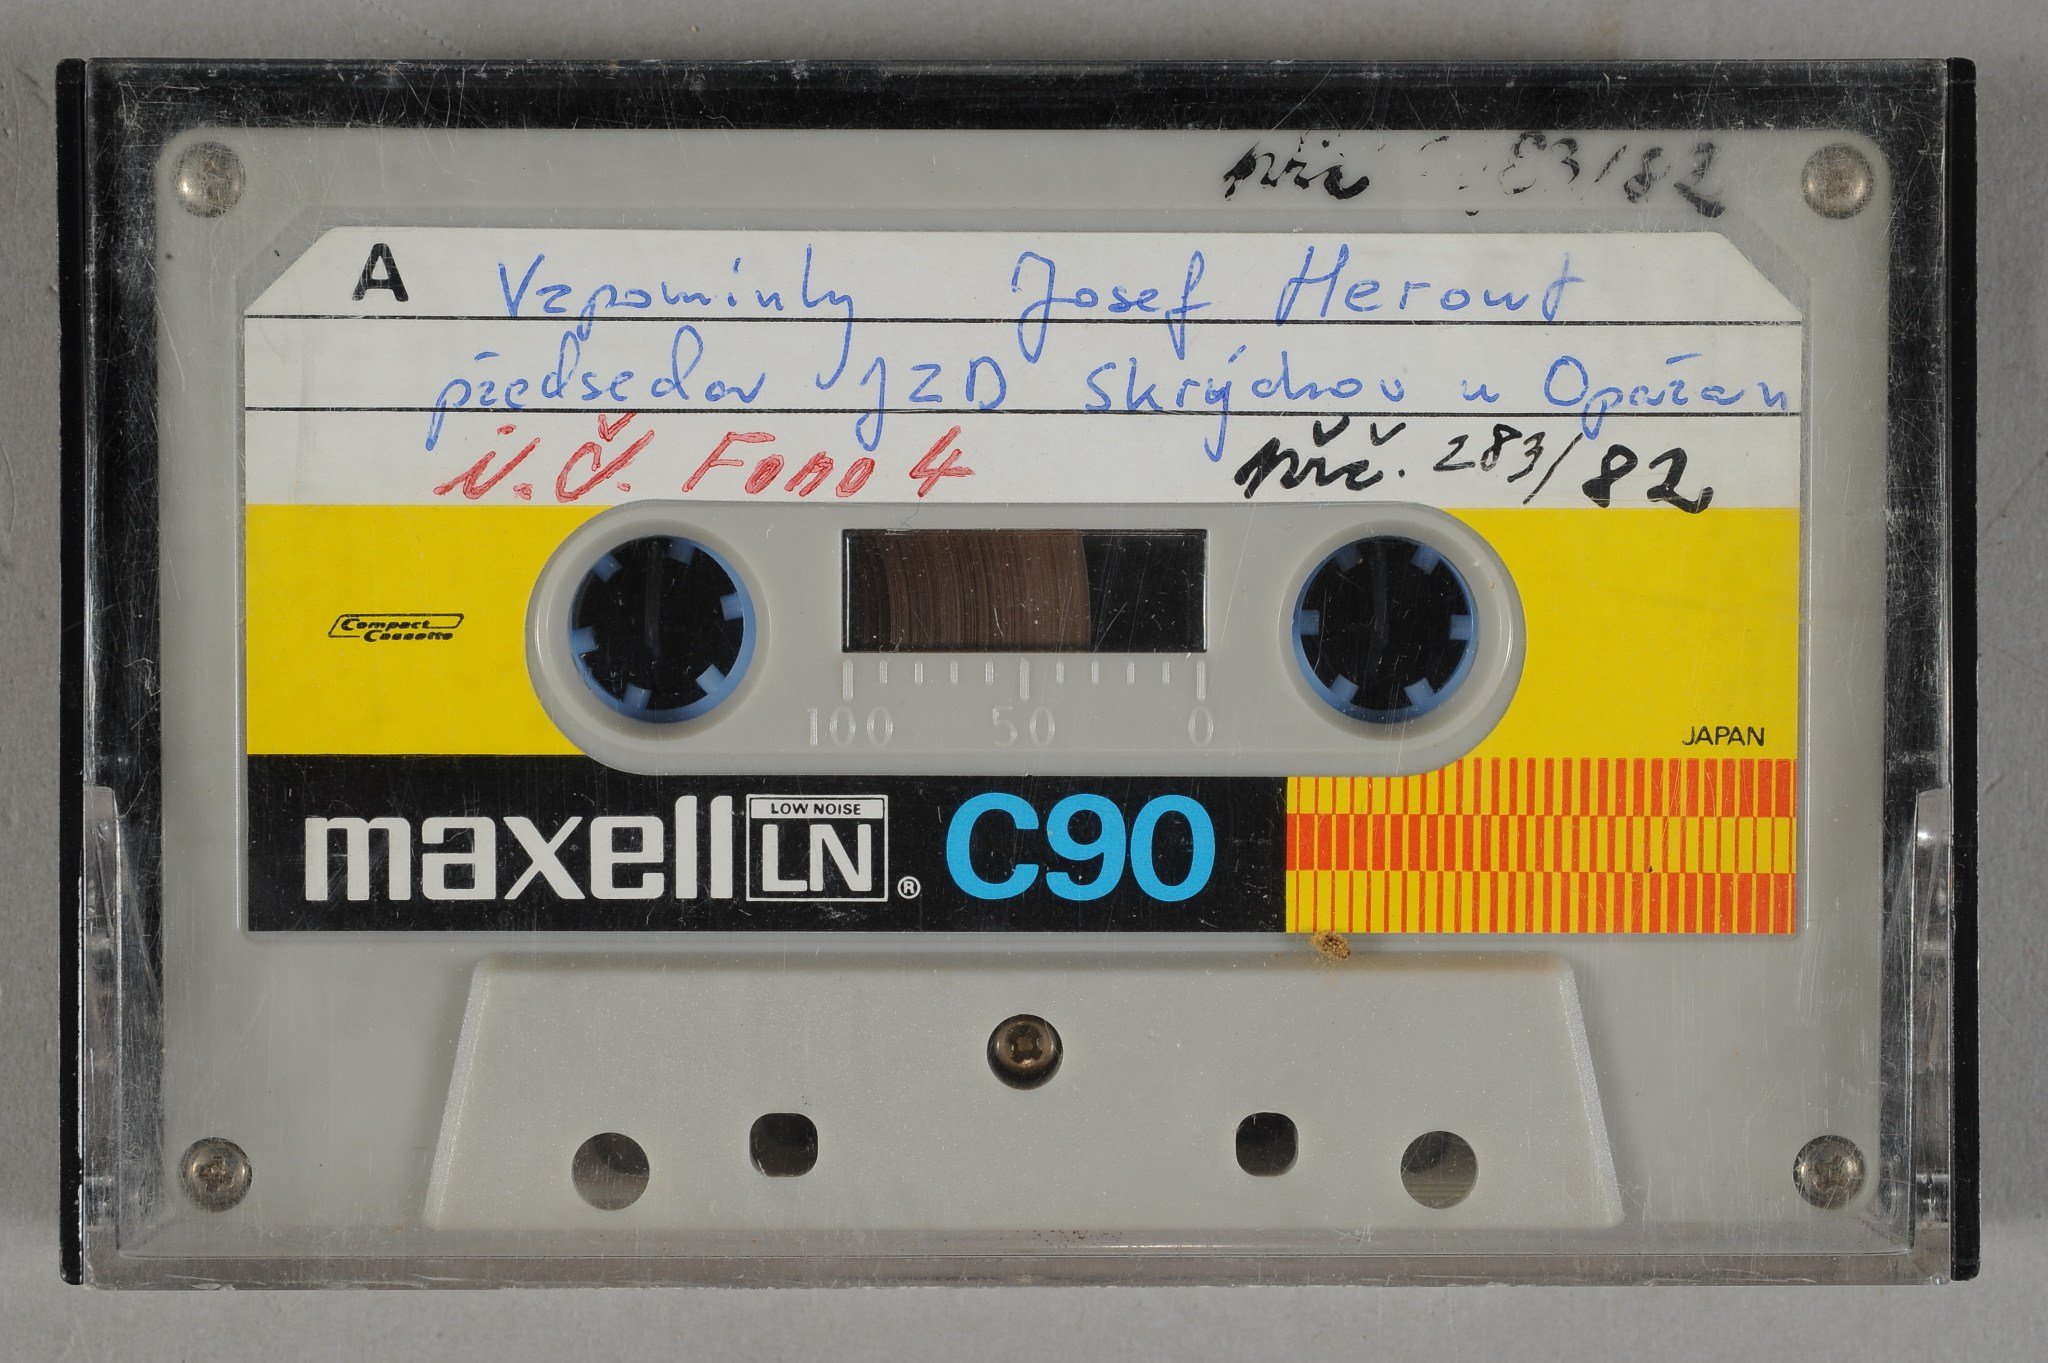 př č 283/82
A Vzpomínky Josef Herout
předseda JZD Skrýchov u Opařan
i.č. Fono 4 př.č. 283/82
Compact
Cassette
100 50 0
JAPAN
maxell LOW NOISE LN ® C90